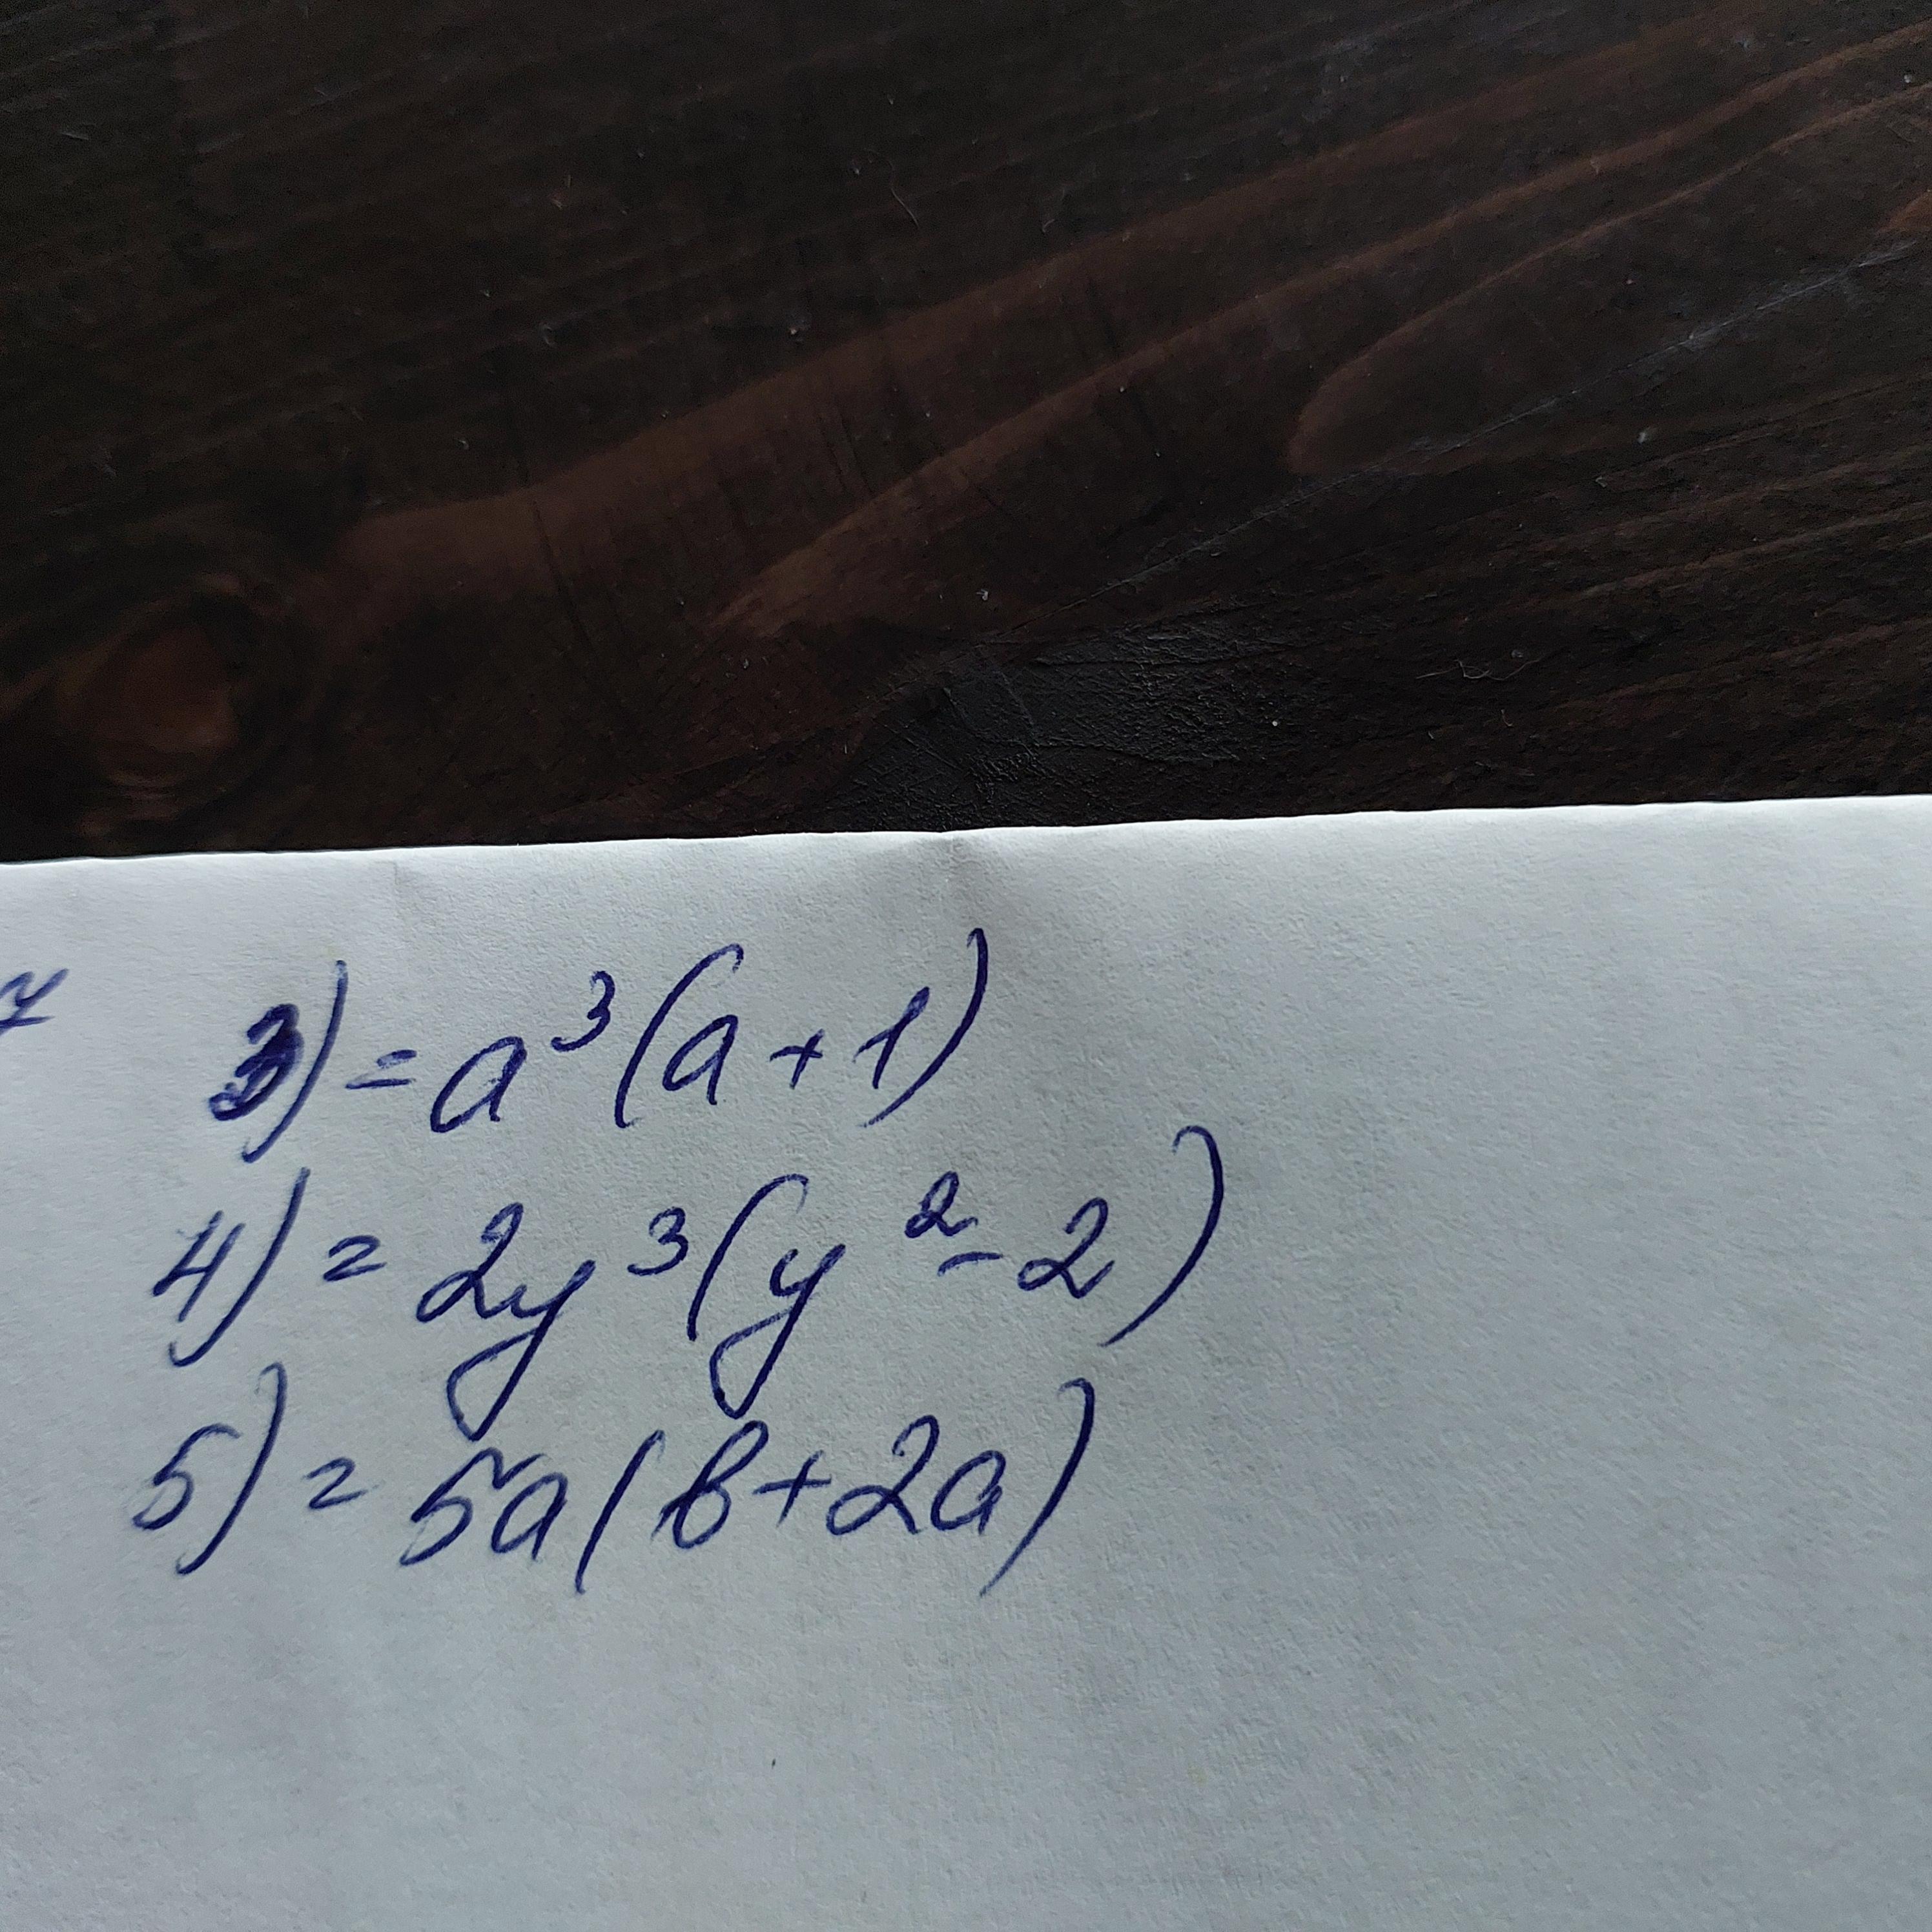 3) = a³(a+1)
4) = 2y³(y²-2)
5) = 5a(b+2a)